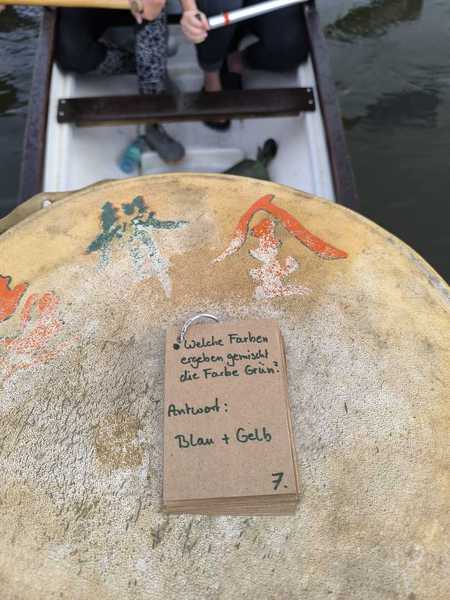 Welche Farben
ergeben gemischt
die Farbe Grün?
Antwort:
Blau + Gelb
7.